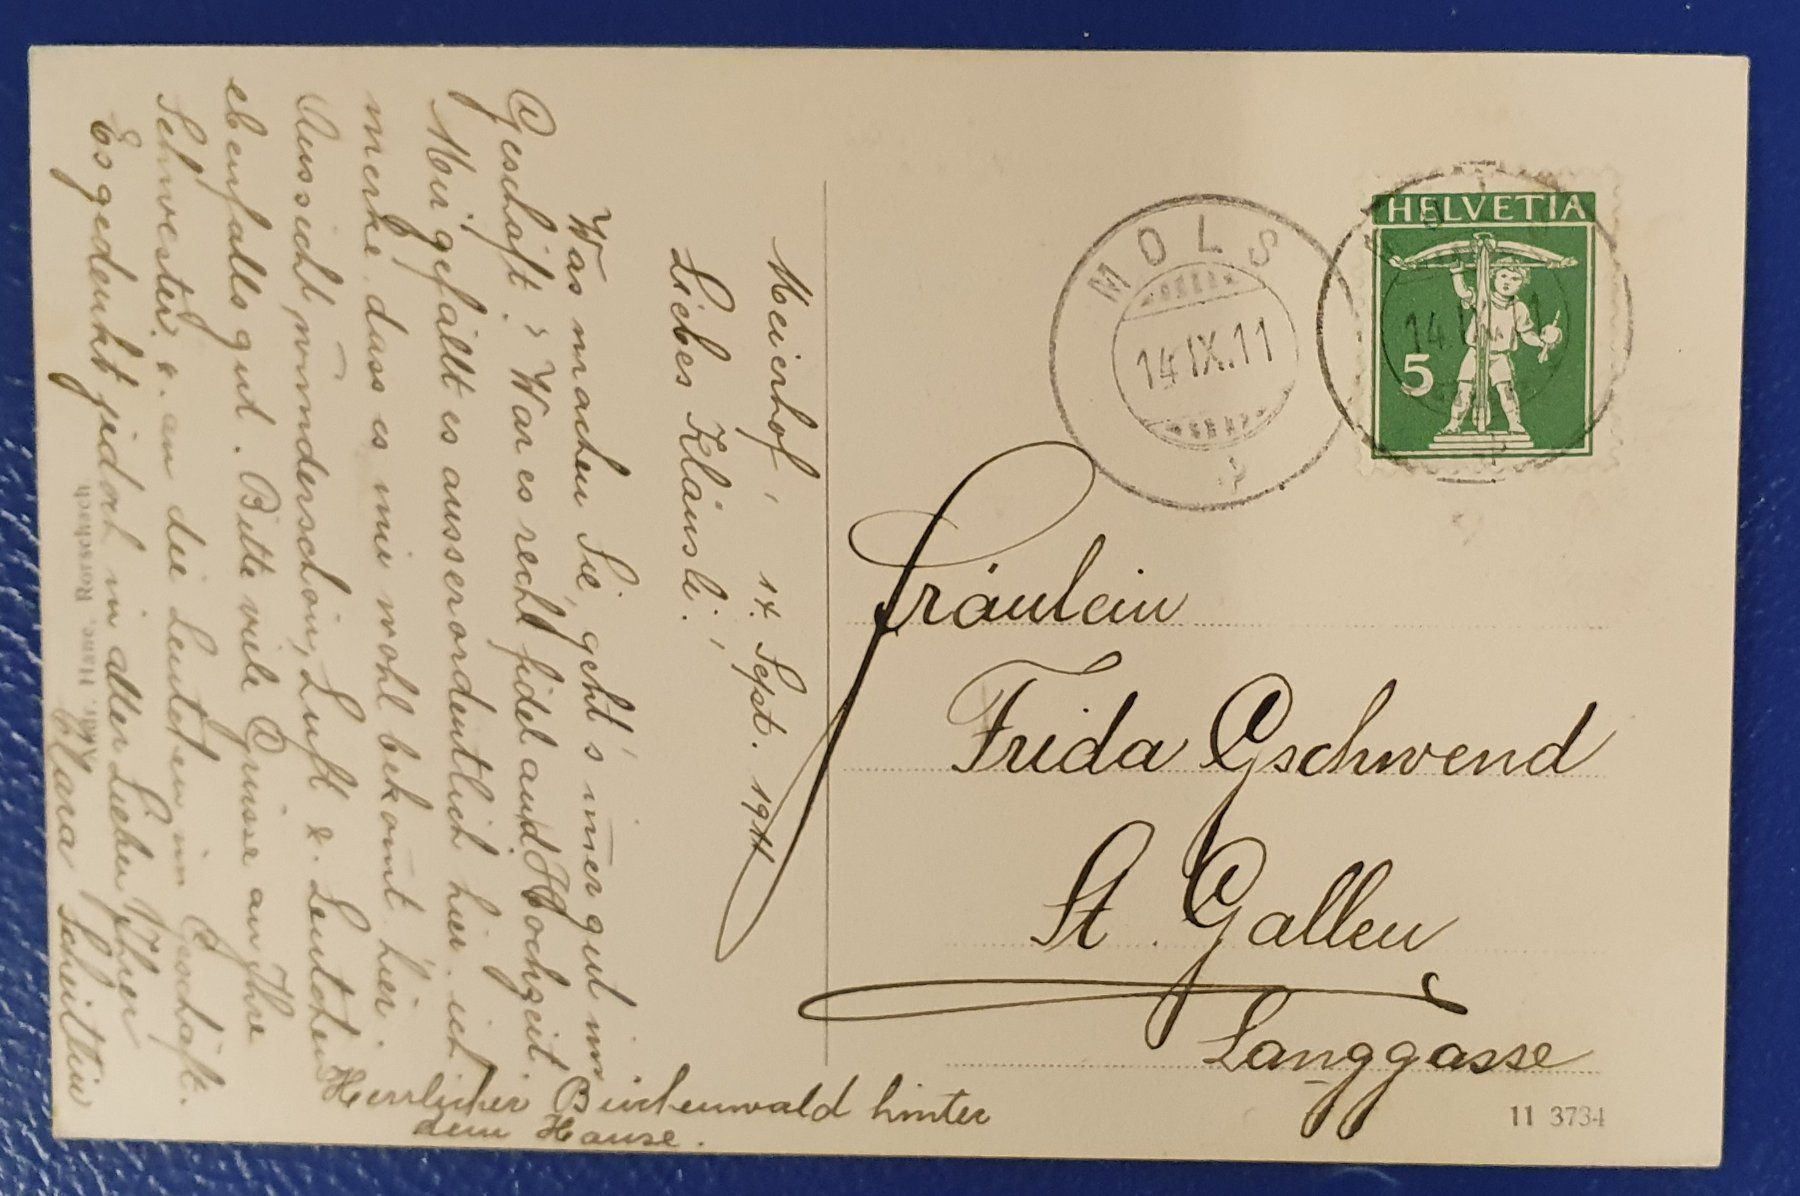 Meierhof, 14. Sept. 1911
Liebes Kläusli!
Was machen Sie, geht's im̅er gut im
Geschäft? War es recht fidel an d. Hochzeit.
Mir gefällt es ausserordentlich hier, ich
merke, dass es mir wohl bekom̅t hier.
Aussicht wunderschön, Luft & Leutchen
ebenfalls gut. Bitte viele Grüsse an Ihre
Schwester & an die Leutchen im Geschäft.
Es gedenkt jedoch in aller Liebe Ihrer
Clara Scheitlin
Herrlicher Buchenwald hinter
dem Hause.
Hane, Rorschach
MOLS
14.IX.11
HELVETIA
5
14.IX.11
Fräulein
Frida Gschwend
St. Gallen
Langgasse
11 3734